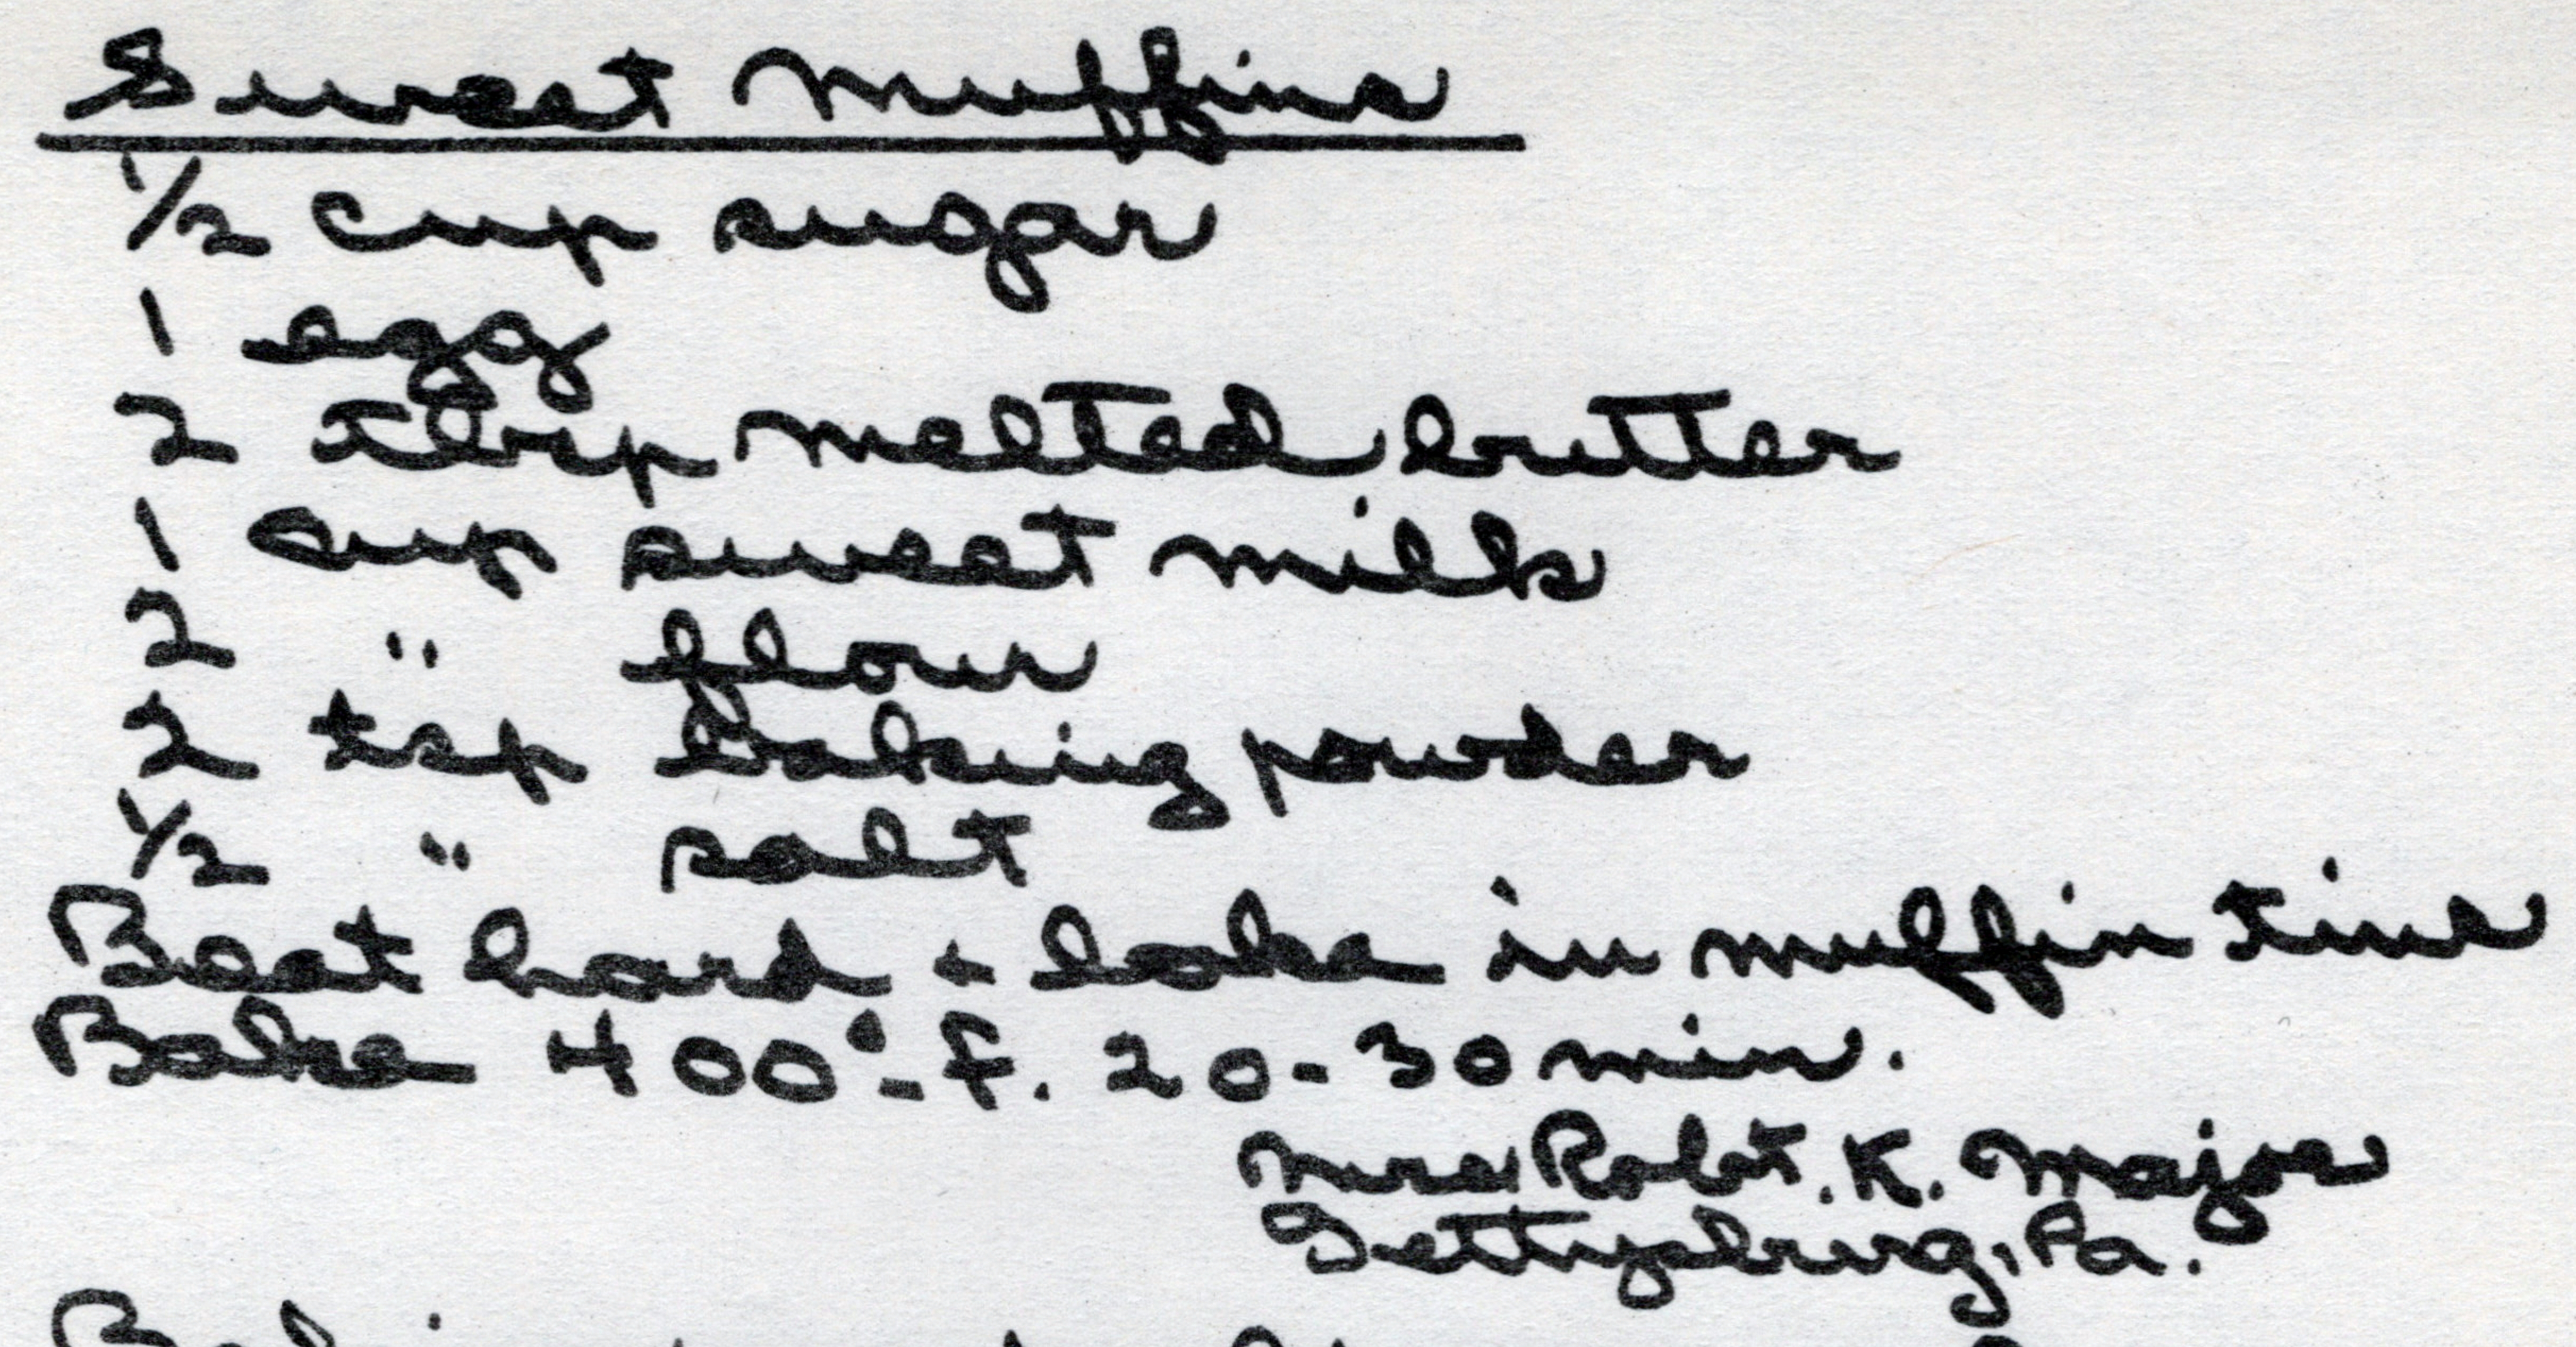 Sweet Muffins
1/2 cup sugar
1 egg
2 tbsp melted butter
1 cup sweet milk
2 " flour
2 tsp baking powder
1/2 " salt
Beat hard + bake in muffin tins
Bake 400°-F. 20-30 min.
Mrs Robt. K. Major
Gettysburg, Pa.